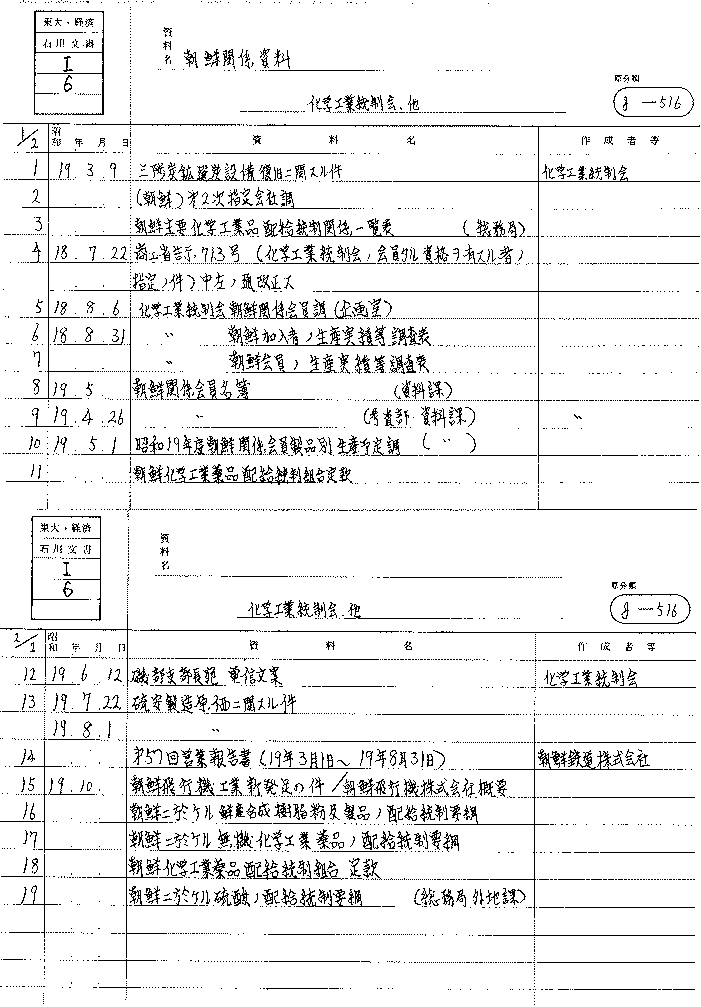 東大・経済
石川文書
I
6
資料名
朝鮮関係資料
化学工業統制会、他
原分類
8-516
1/2 昭和 年 月 日 資料名 作成者等
1 19.3.9 三陟炭鉱 設備復旧ニ関スル件 化学工業統制会
2 (朝鮮)第2次指定会社調
3 朝鮮主要化学工業品配給統制関係一覧表 (総務局)
4 18.7.22 商工省告示713号 (化学工業統制会ノ会員タル資格ヲ有スル者ノ
指定ノ件)中左ノ通改正ス
5 18.8.6 化学工業統制会朝鮮関係会員調(企画室)
6 18.8.31 〃 朝鮮加入者ノ生産実績等調査表
7 〃 朝鮮会員ノ生産実績等調査表
8 19.5 朝鮮関係会員名簿 (資料課)
9 19.4.26 〃 (考査部 資料課) 〃
10 19.5.1 昭和19年度朝鮮関係会員製品別生産予定調 (〃)
11 朝鮮化学工業薬品配給統制組合定款
東大・経済
石川文書
I
6
資料名
化学工業統制会、他
原分類
8-516
2/2 昭和 年 月 日 資料名 作成者等
12 19.6.12 磯部支部長宛 電信文案 化学工業統制会
13 19.7.22 硫安製造原価ニ関スル件
19.8.1 〃
14 第57回営業報告書(19年3月1日~19年8月31日) 朝鮮鉄道株式会社
15 19.10 朝鮮飛行機工業新発足の件/朝鮮飛行機株式会社概要
16 朝鮮ニ於ケル鮮産合成樹脂粉及製品ノ配給統制要綱
17 朝鮮ニ於ケル無機化学工業薬品ノ配給統制要綱
18 朝鮮化学工業薬品配給統制組合定款
19 朝鮮ニ於ケル硫酸ノ配給統制要綱 (総務局外地課)